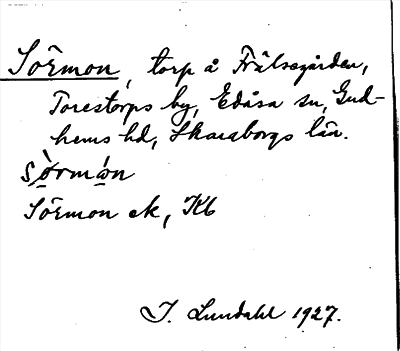 Sörmon, torp å Frälsegården,
Torestorps by, Edåsa sn, Gud-
hems hd, Skaraborgs län.
sø̀rmón
Sörmon ek, Kb
I. Lundahl 1927.